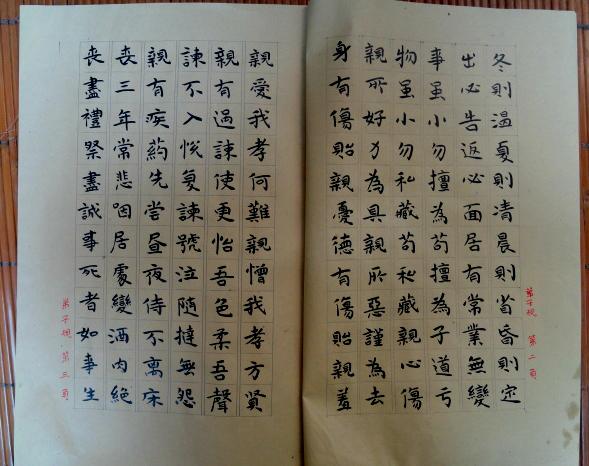 弟子規 第二頁
冬則温夏則清晨則省昏則定
出必告返必面居有常業無變
事虽小勿擅為苟擅為子道亏
物虽小勿私藏苟私藏親心傷
親所好力為具親所惡謹為去
身有傷貽親憂德有傷貽親羞
親愛我孝何難親憎我孝方賢
親有過諫使更怡吾色柔吾聲
諫不入悅复諫號泣隨撻無怨
親有疾葯先嘗昼夜侍不离床
喪三年常悲咽居處變酒肉絕
喪盡禮祭盡誠事死者如事生
弟子規 第三頁